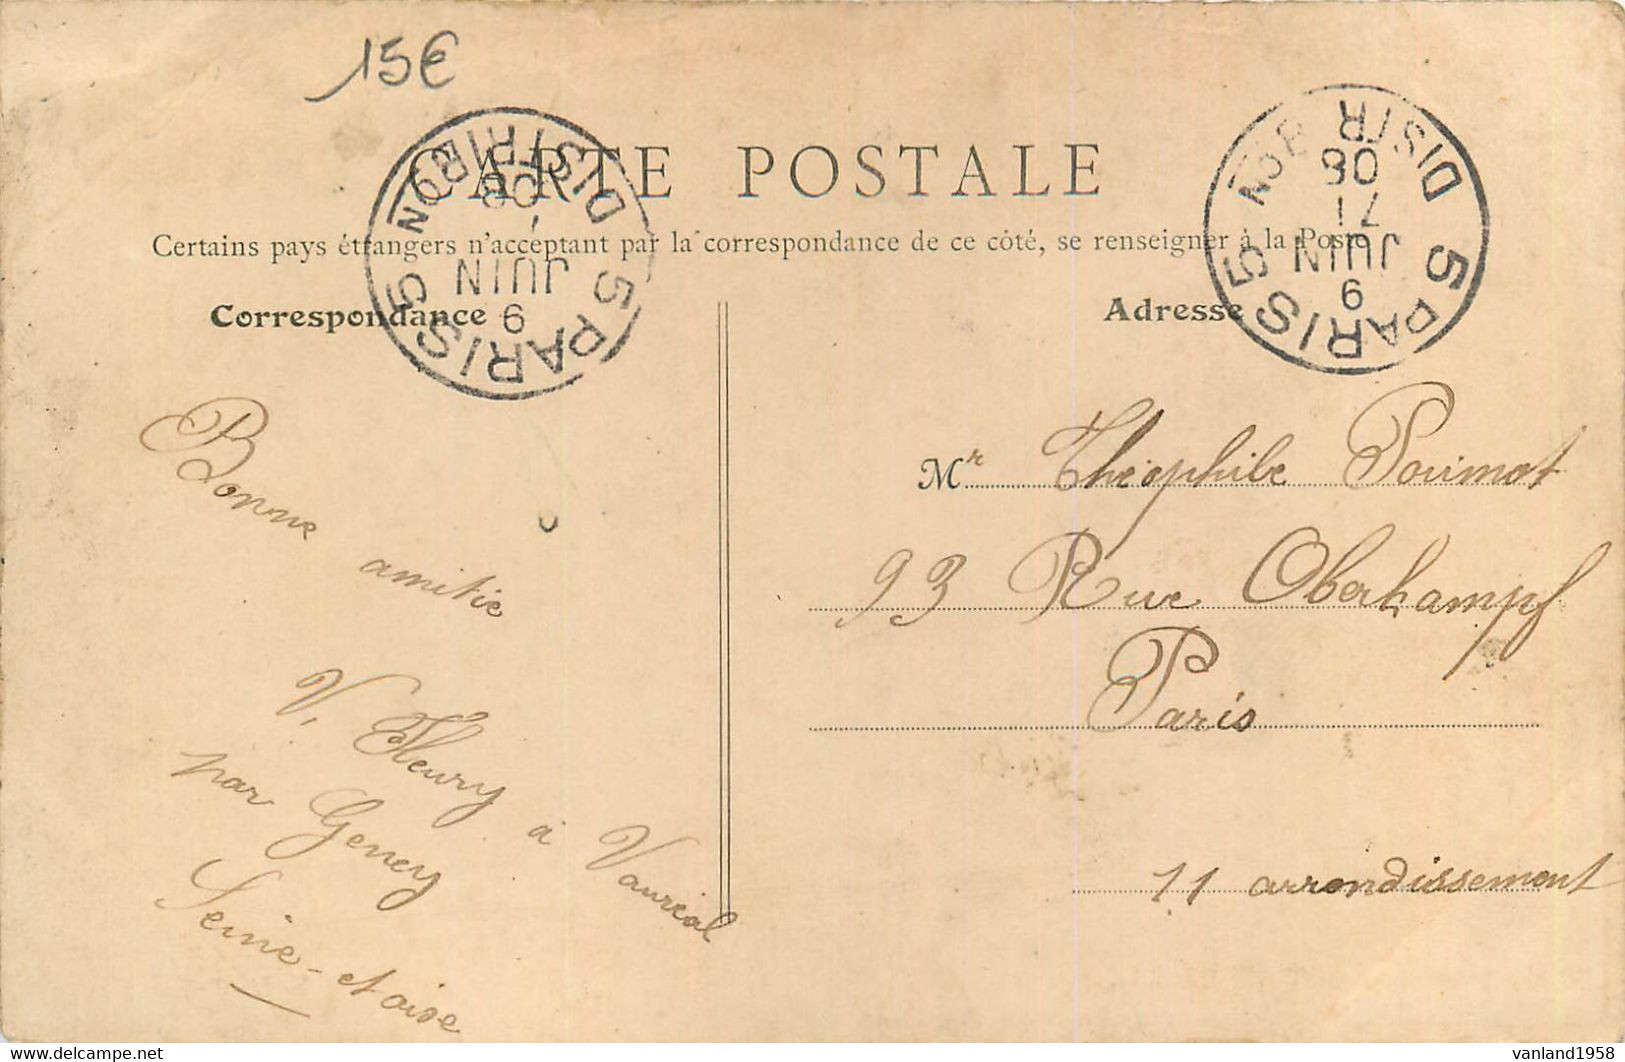 15€
CARTE POSTALE
Certains pays étrangers n'acceptant par la correspondance de ce côté, se renseigner à la Poste
Correspondance
Adresse
PARIS 5
DISTRIBON
9
JUIN
06
5
PARIS 5
DISTRIBON
9
JUIN
71
06
5
Bonne
amitié
V. Fleury à Vauréal
par Geney
Seine-et oise
Mr Théophile Pourmot
93 Rue Oberkampf
Paris
11 arrondissement
vanland1958